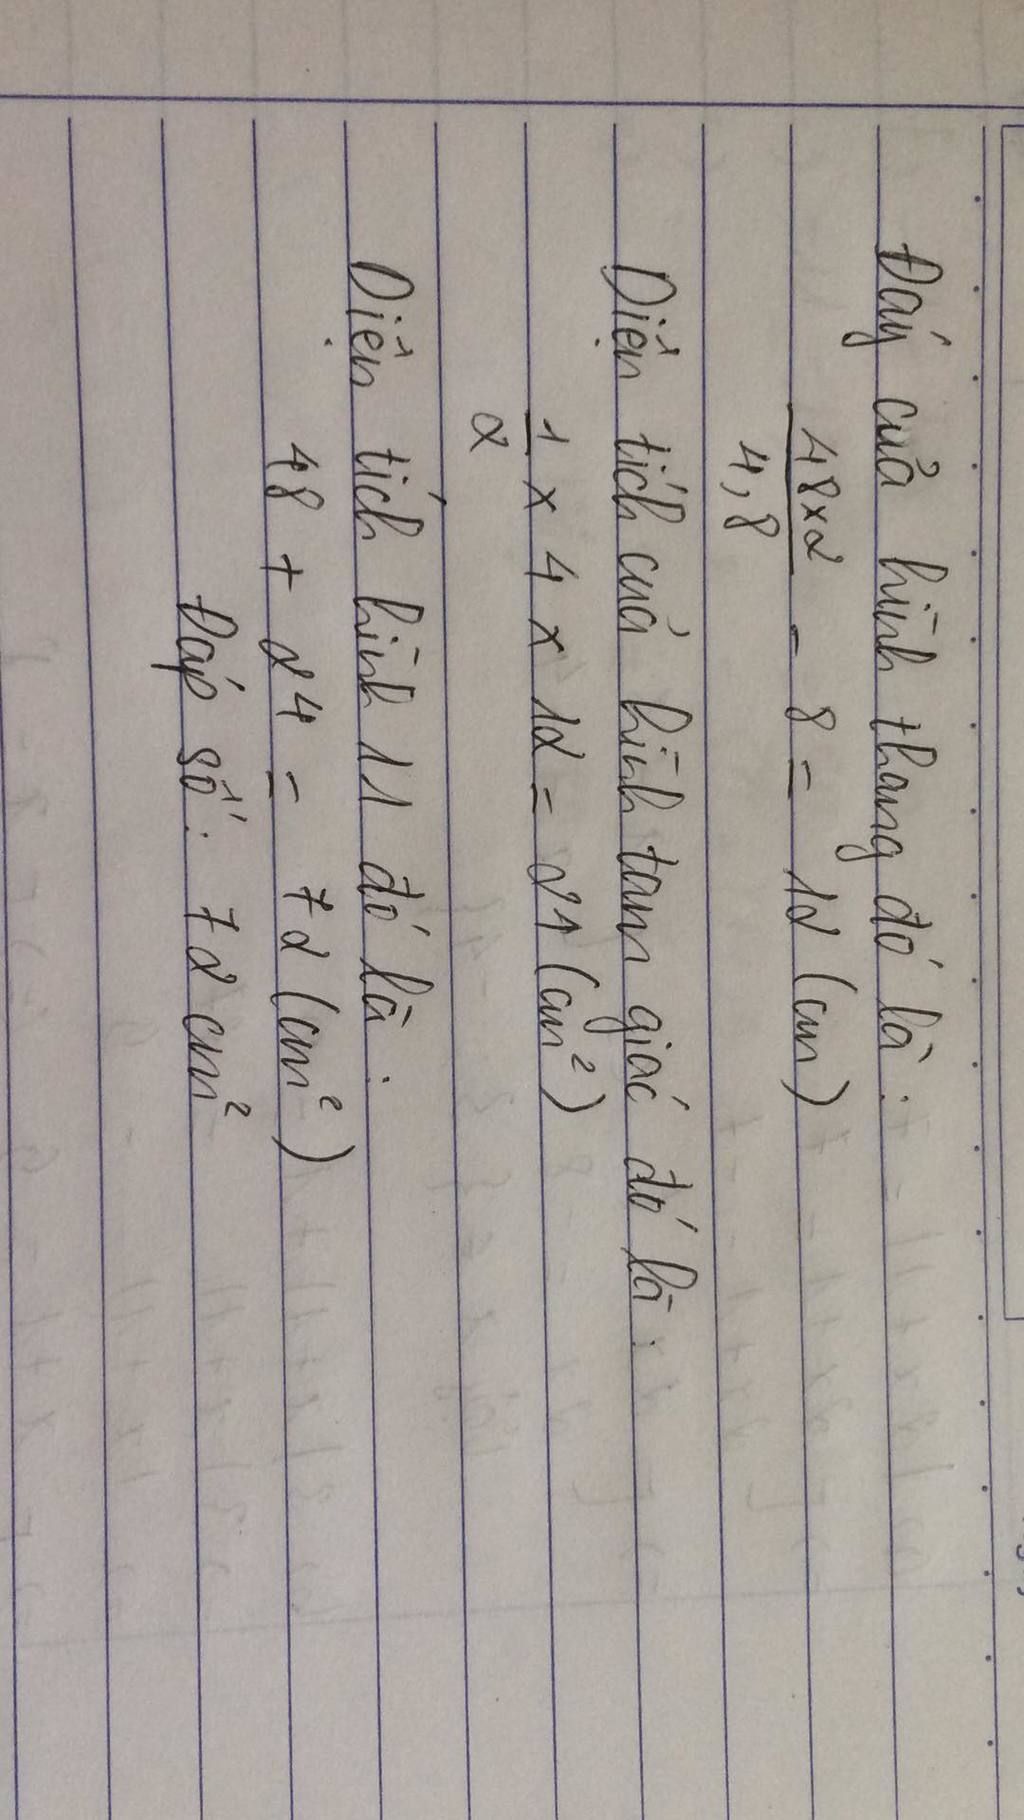 Đáy của hình thang đó là :
48x2
4,8
- 8 = 12 (cm)
Diện tích của hình tam giác đó là :
1
2
x 4 x 12 = 24 (cm²)
Diện tích hình 11 đó là :
48 + 24 = 72 (cm²)
Đáp số : 72 cm²